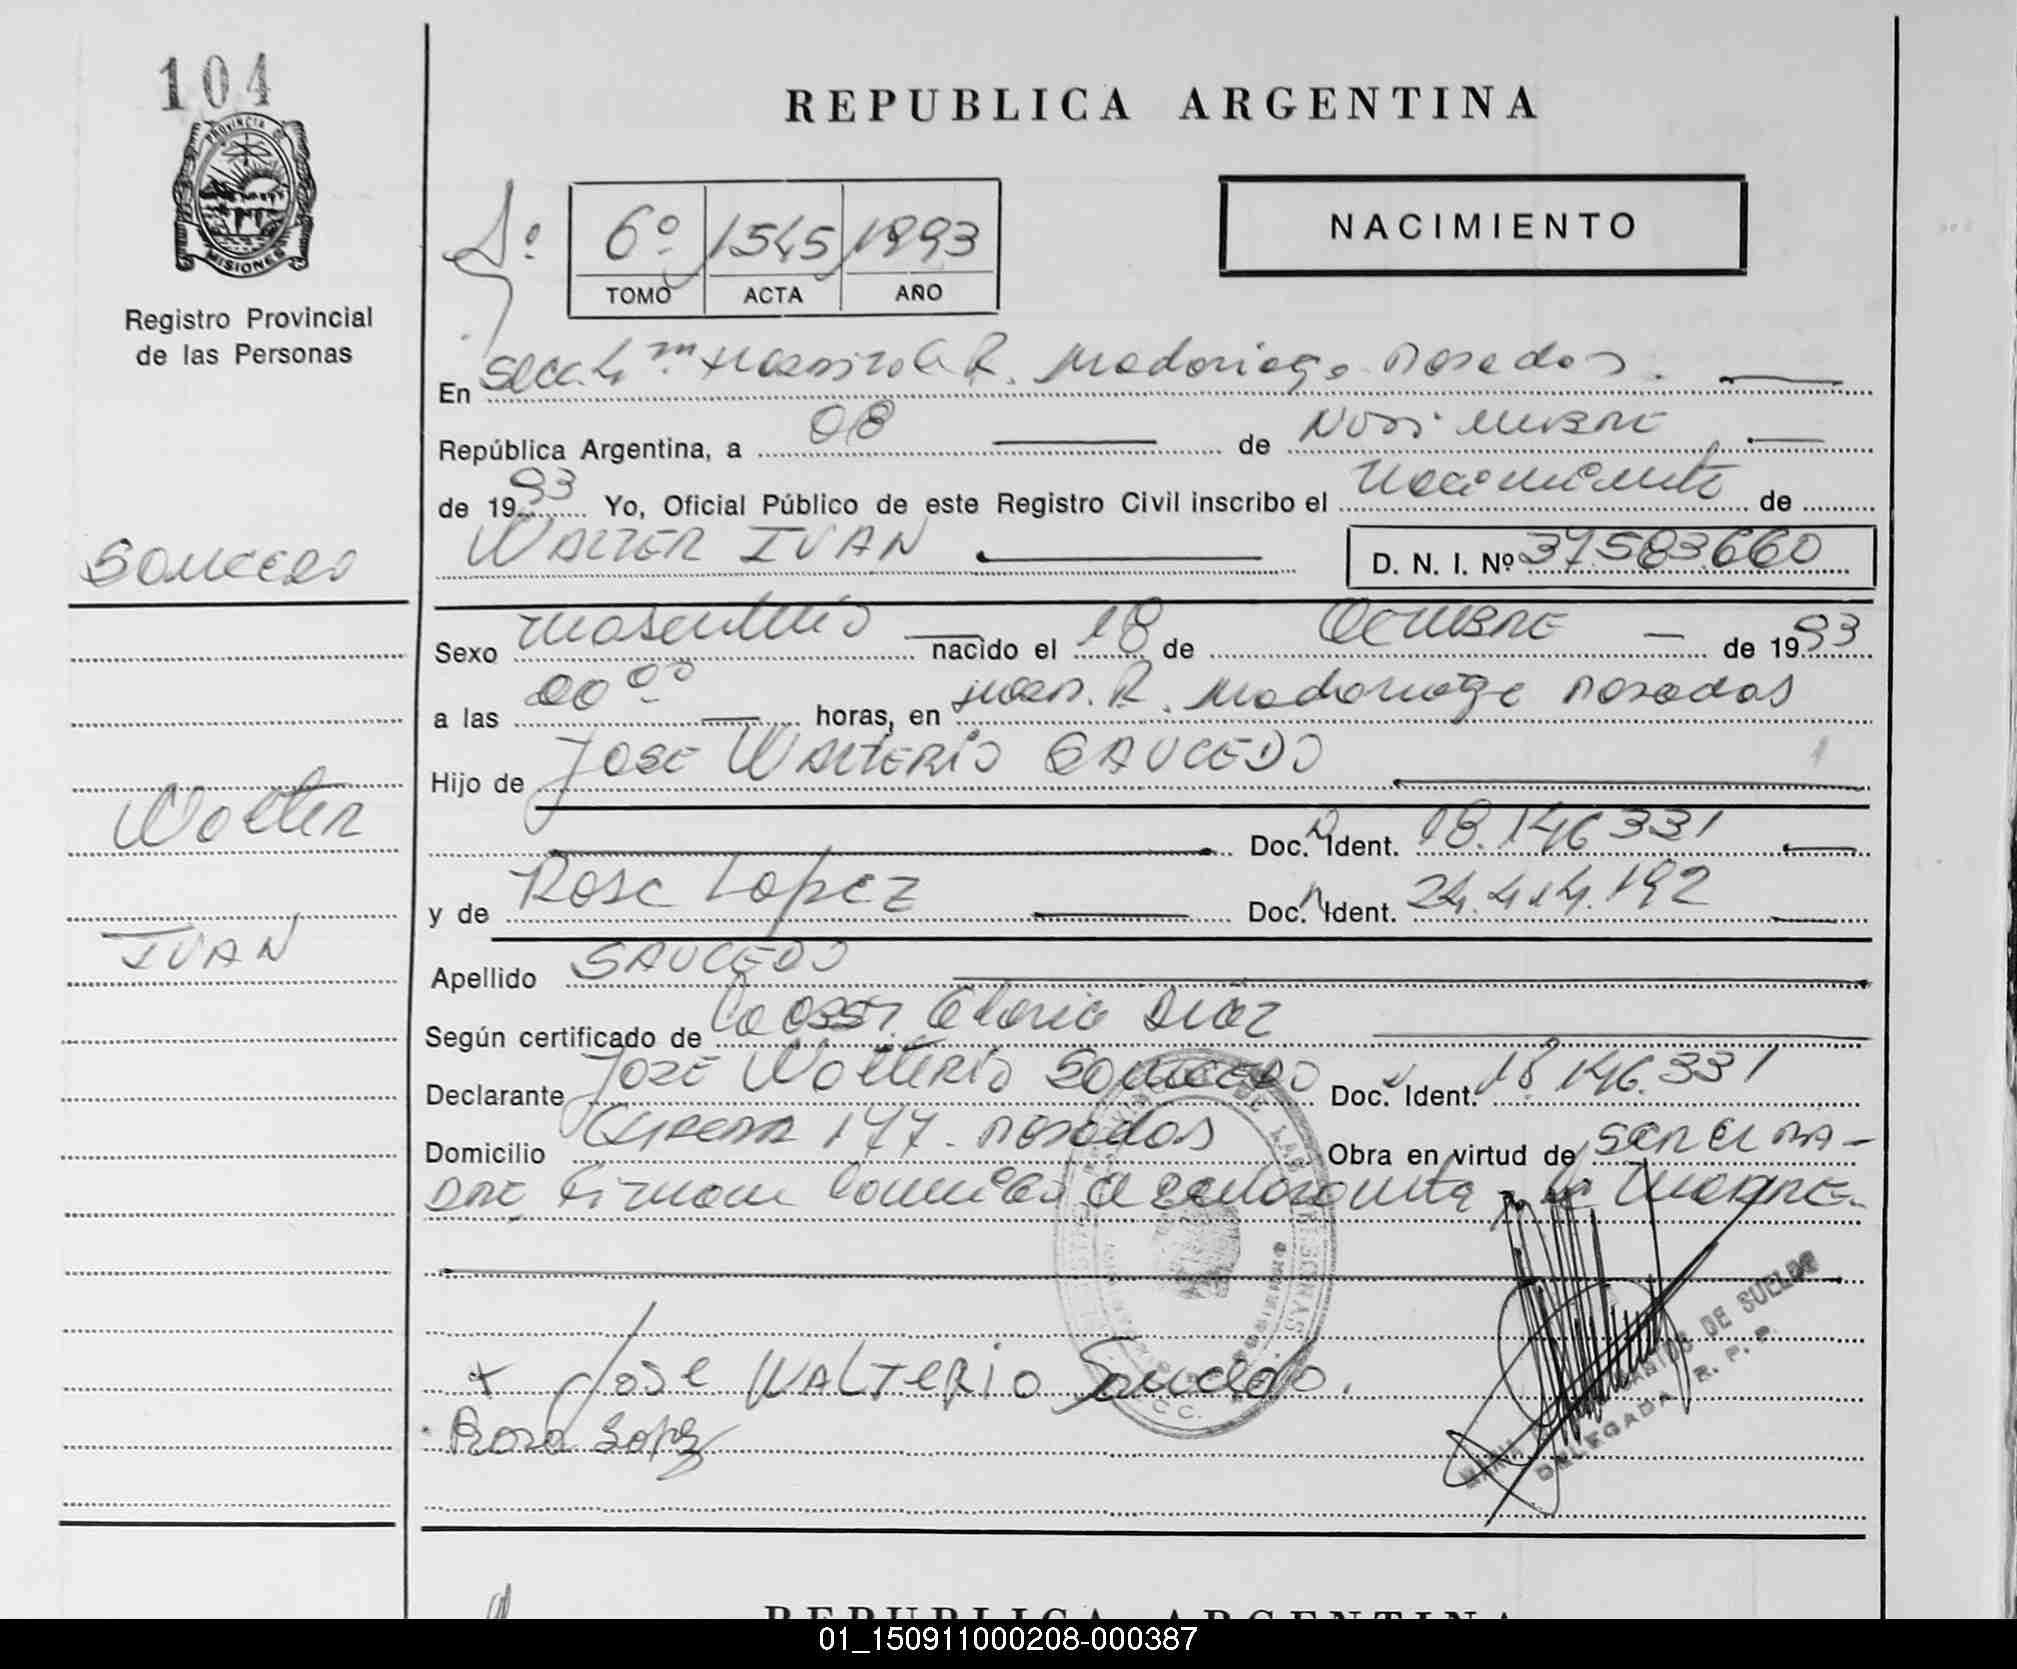 104
PROVINCIA DE
MISIONES
Registro Provincial
de las Personas
REPUBLICA ARGENTINA
6º 1545 1993
TOMO ACTA AÑO
NACIMIENTO
En Secc. 4ª R. Madariaga Posadas.
República Argentina, a 08 de Noviembre
de 1993 Yo, Oficial Público de este Registro Civil inscribo el Nacimiento de
Saucedo
WALTER IVAN D. N. I. Nº 37.583.660
Sexo masculino nacido el 18 de OCTUBRE de 1993
a las 00 00 horas, en R. Madariaga Posadas
Hijo de JOSE WALTERIO SAUCEDO
Walter
Doc. N Ident. 18.146.331
y de Rosa Lopez Doc. N Ident. 24.414.192
IVAN
Apellido SAUCEDO
Según certificado de la Obst. Gloria Diaz
Declarante JOSE Walterio Saucedo Doc. N Ident. 18.146.331
Domicilio 177 - Posadas Obra en virtud de ser el PA-
DRE, Firman la MADRE.
x Jose WALTERIO Saucedo.
Rosa Lopez
MARIA DE SUELDO
DELEGADA R. P. P.
REPUBLICA ARGENTINA
01_150911000208-000387